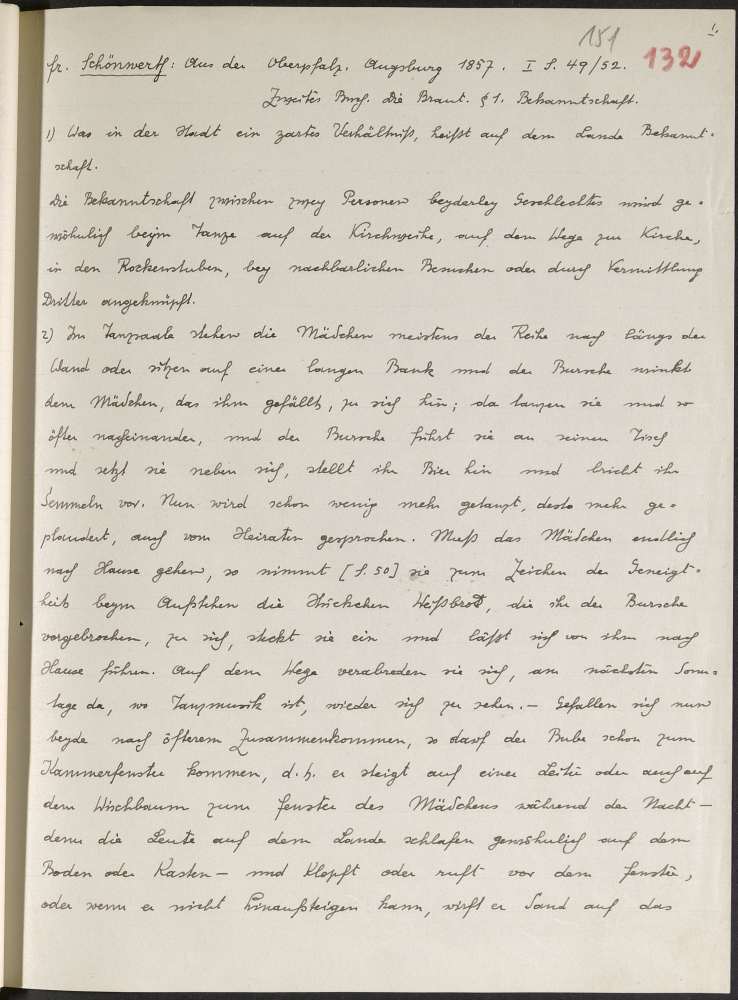 1.
151
132
fr. Schönwerth: Aus der Oberpfalz. Augsburg 1857. I S. 49/52.
Zweites Buch. Die Braut. § 1. Bekanntschaft.
1) Was in der Stadt ein zartes Verhältniß, heißt auf dem Lande Bekannt-
schaft.
Die Bekanntschaft zwischen zwey Personen beyderley Geschlechtes wird ge-
wöhnlich beym Tanze auf der Kirchweihe, auf dem Wege zur Kirche,
in den Rockenstuben, bey nachbarlichen Besuchen oder durch Vermittlung
Dritter angeknüpft.
2) Im Tanzsaale stehen die Mädchen meistens der Reihe nach längs der
Wand oder sitzen auf einer langen Bank und der Bursche winkt
dem Mädchen, das ihm gefällt, zu sich hin; da tanzen sie und so
öfter nacheinander, und der Bursche führt sie an seinen Tisch
und setzt sie neben sich, stellt ihr Bier hin und bricht ihr
Semmeln vor. Nun wird schon wenig mehr getanzt, desto mehr ge-
plaudert, auch vom Heiraten gesprochen. Muß das Mädchen endlich
nach Hause gehen, so nimmt [S. 50] sie zum Zeichen der Geneigt-
heit beym Aufstehen die Stückchen Weißbrod, die ihr der Bursche
vorgebrochen, zu sich, steckt sie ein und läßt sich von ihm nach
Hause führen. Auf dem Wege verabreden sie sich, am nächsten Sonn-
tage da, wo Tanzmusik ist, wieder sich zu sehen. — Gefallen sich nun
beyde nach öfterem Zusammenkommen, so darf der Bube schon zum
Kammerfenster kommen, d. h. er steigt auf einer Leiter oder auch auf
dem Wischbaum zum Fenster des Mädchens während der Nacht —
denn die Leute auf dem Lande schlafen gewöhnlich auf dem
Boden oder Kasten — und klopft oder ruft vor dem Fenster,
oder wenn er nicht hinaufsteigen kann, wirft er Sand auf das